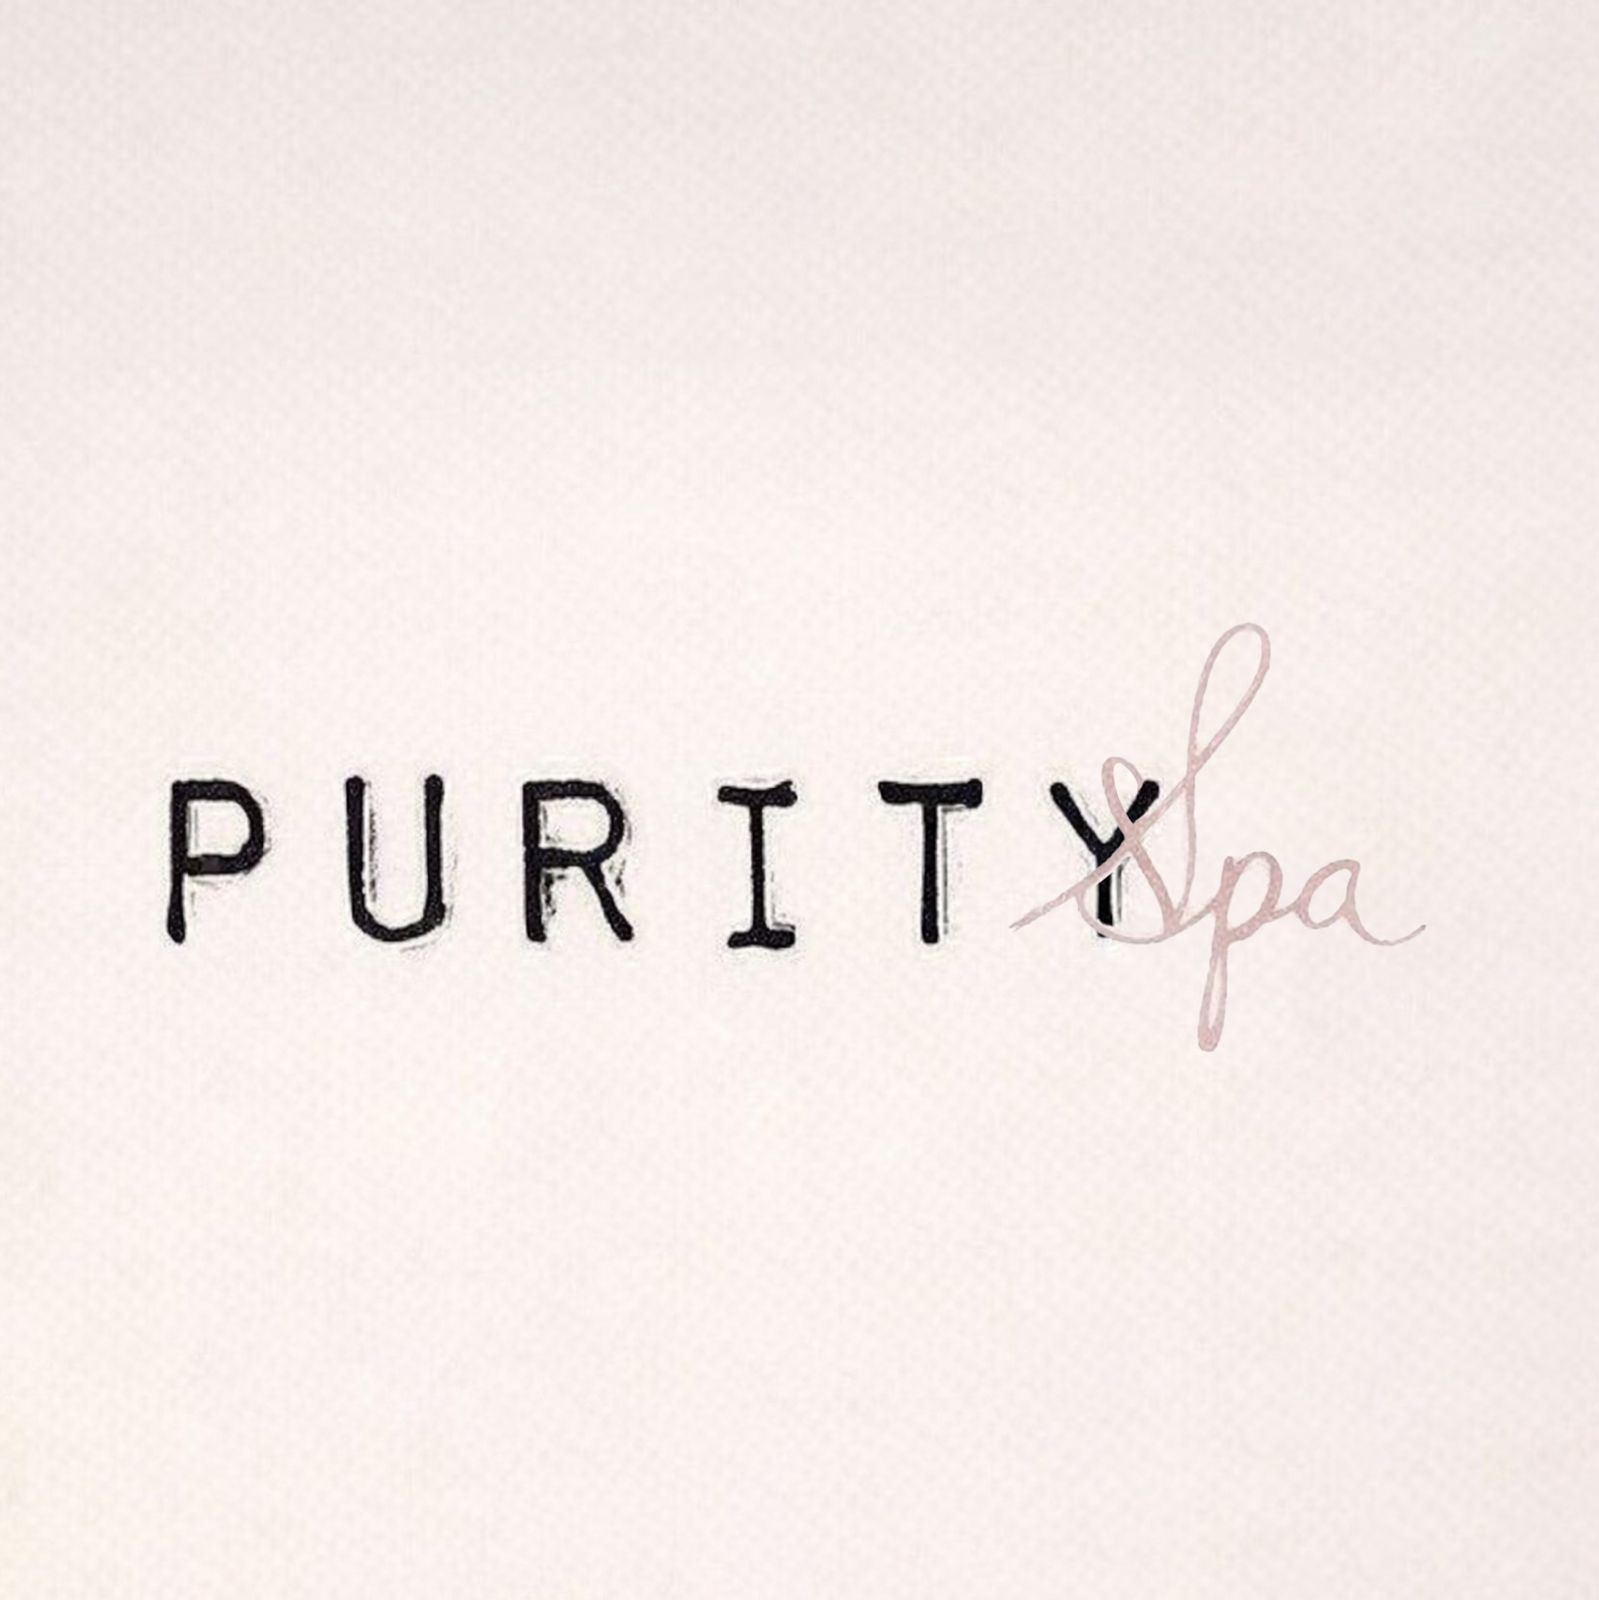 PURITY Spa